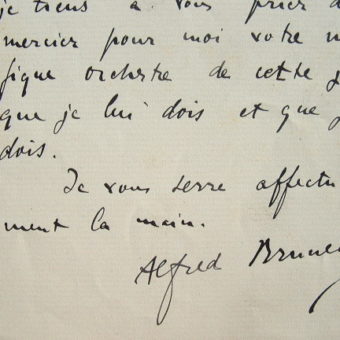 je tiens à vous prier d
mercier pour moi votre m
fique orchestre de cette j
que je lui dois et que j
dois.
Je vous serre affectu
ment la main.
Alfred Brunea